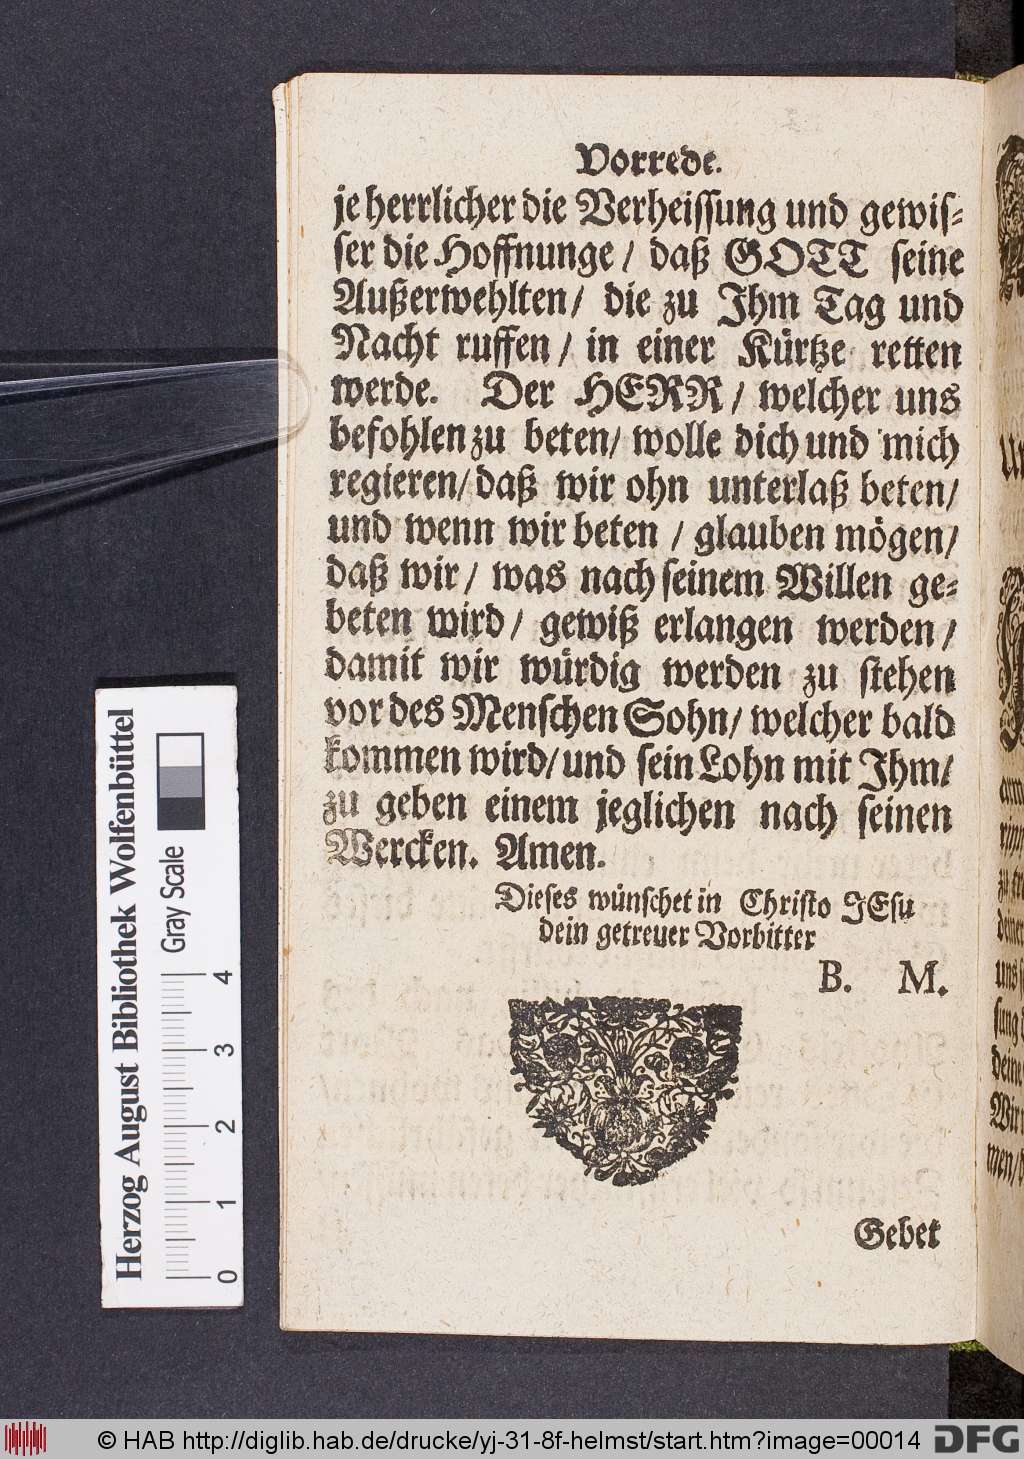 Vorrede.
je herrlicher die Verheissung und gewis-
ser die Hoffnunge / daß GOTT seine
Außerwehlten / die zu Ihm Tag und
Nacht ruffen / in einer Kürtze retten
werde. Der HERR / welcher uns
befohlen zu beten / wolle dich und mich
regieren / daß wir ohn unterlaß beten /
und wenn wir beten / glauben mögen /
daß wir / was nach seinem Willen ge-
beten wird / gewiß erlangen werden /
damit wir würdig werden zu stehen
vor des Menschen Sohn / welcher bald
kommen wird / und sein Lohn mit Ihm /
zu geben einem jeglichen nach seinen
Wercken. Amen.
Dieses wünschet in Christo JEsu
dein getreuer Vorbitter
B. M.
Gebet
Herzog August Bibliothek Wolfenbüttel
Gray Scale
0 1 2 3 4
© HAB http://diglib.hab.de/drucke/yj-31-8f-helmst/start.htm?image=00014
DFG